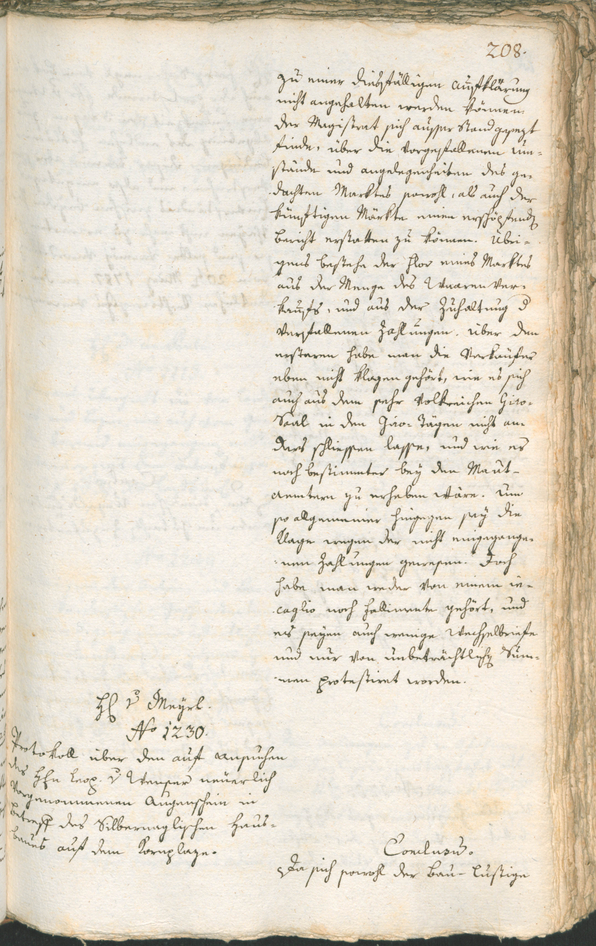 208.
zu einer diesfälligen Aufklärung
nicht angehalten werden können
der Magistrat sich ausser Stand gesezt
finde, über die vorgefallenen Um-
stände und Angelegenheiten des ge-
dachten Marktes sowohl, als auch der
künftigen Märkte einen erschöpfend
Bericht erstatten zu können. Übri-
gens bestehe der Flor eines Marktes
aus der Menge des Waaren Ver-
kaufs, und aus der Zuhaltung d
verfallenen Zahlungen. Über den
ersteren habe man die Verkäufer
eben nicht klagen gehört, wie es sich
auch aus dem sehr volkreichen Giro-
Saal in den Giro-Tägen nicht an-
ders schliessen lasse, und wie es
noch bestimmter bey den Maut-
aemtern zu erheben wäre. Um
so allgemeiner hingegen sey die
Klage wegen der nicht eingegange-
nen Zahlungen gewesen. Doch
habe man weder von einem in-
caglio noch Fallimente gehört, und
es seyen auch wenige Wechselbriefe
und nur von unbeträchtlich Sum-
men protestirt worden.
H v Meyrl.
No 1230.
Protokoll über den auf Ansuchen
des Hrn Leop. v Wenser neuerlich
vorgenommenen Augenschein in
Betreff des Silbernaglischen Haus-
baues auf dem Kornplaze.
Conclusū.
Da sich sowohl der Bau-Lustige